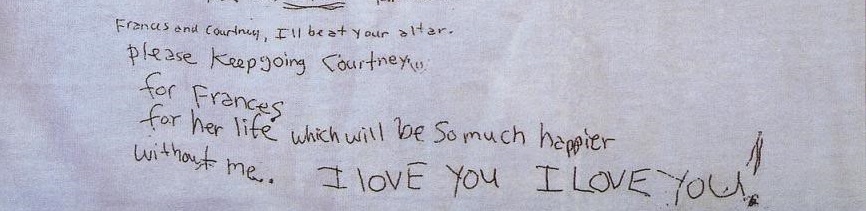 Frances and Courtney, I'll be at your altar.
please keep going Courtney
for Frances
for her life which will be so much happier
without me. I LOVE YOU I LOVE YOU!